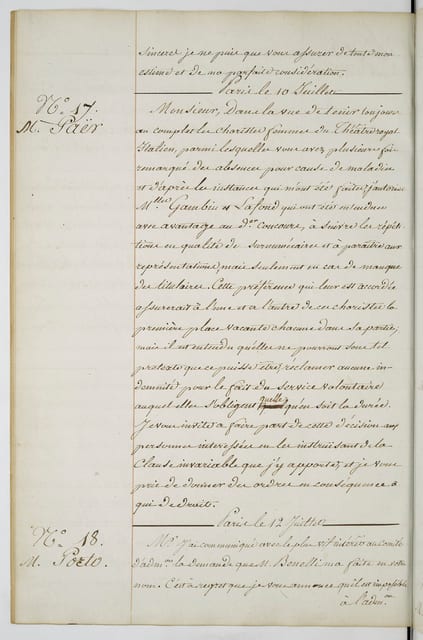 sincere je ne puis que vous assurer de toute mon
estime et de ma parfaite considération.
Paris le 10 Juillet
N.o 17.
M. Paër
Monsieur, Dans la vue de tenir toujours
au complet les choristes femmes du Théâtre royal
Italien, parmi lesquelles vous avez plusieurs fois
remarqué des absences pour cause de maladies
et d'après les instances qui m'ont été faites, j'autorise
M.lles Gambin et Lafond qui ont été entendues
avec avantage au d.er concours, à suivre les répéti-
tions en qualité de surnuméraires et à paraître aux
représentations, mais seulement en cas de manque
des titulaires. Cette préférence qui leur est accordée
assurerait à l'une et à l'autre de ces choristes la
première place vacante chacune dans sa partie,
mais il est entendu qu'elles ne pourront sous tel
prétexte que ce puisse être, réclamer aucune in-
demnité pour le fait du service volontaire
auquel elles s'obligent quelle qu'en soit la durée.
Je vous invite à faire part de cette décision aux
personnes intéressées en les instruisant de la
Clause invariable que j'y apporte, et je vous
prie de donner des ordres en conséquence à
qui de droit.
Paris le 12 Juillet
N.o 18.
M. Porto.
M.r J'ai communiqué avec le plus vif intérêt au comité
d'adm.on la demande que M. Benelli m'a faite en votre
nom. C'est à regret que je vous annonce qu'il est impossible
à l'adm.on